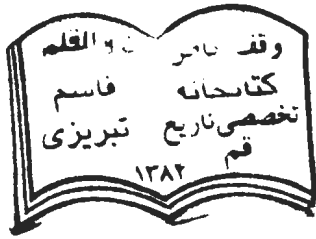 وقف ن و القلم
کتابخانه قاسم
تخصصی تاریخ تبریزی
قم ۱۳۸۲